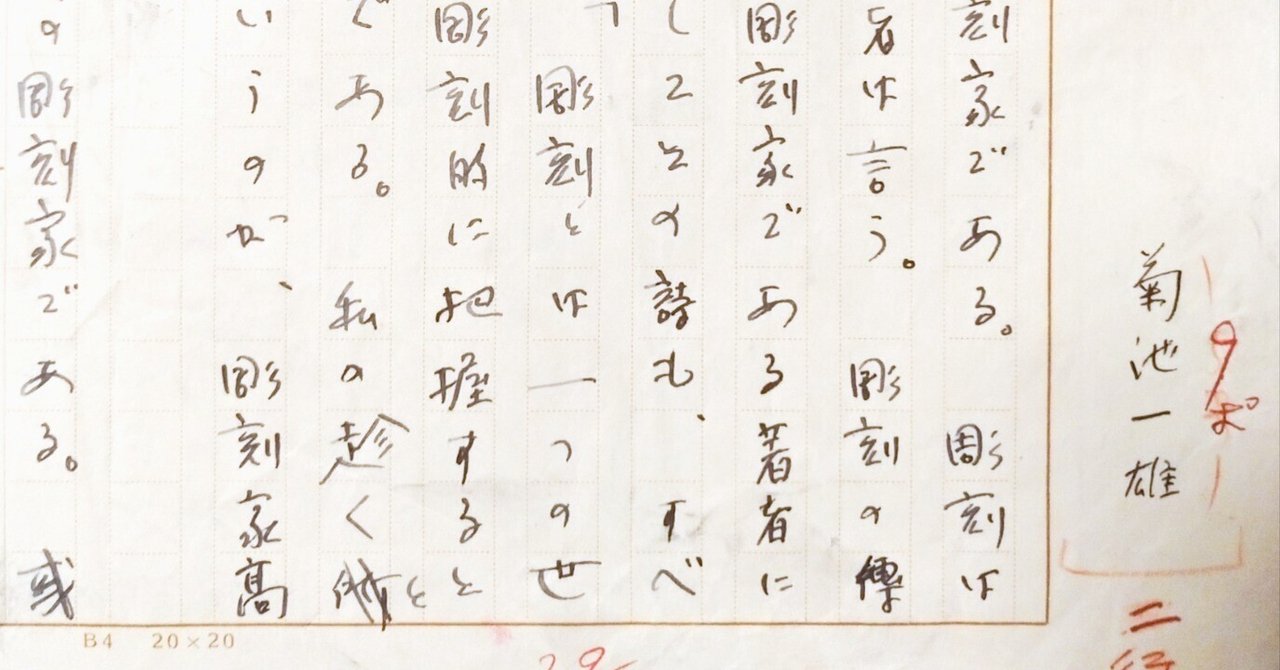 菊池一雄
9ポ
二行
刻家である。 彫刻は
者は言う。 彫刻の
彫刻家である著者に
してとの詩も、すべ
彫刻とは一つの世
彫刻的に把握すると
である。 私の趁く
いうのが、彫刻家高
の彫刻家である。 或
B4 20×20
29